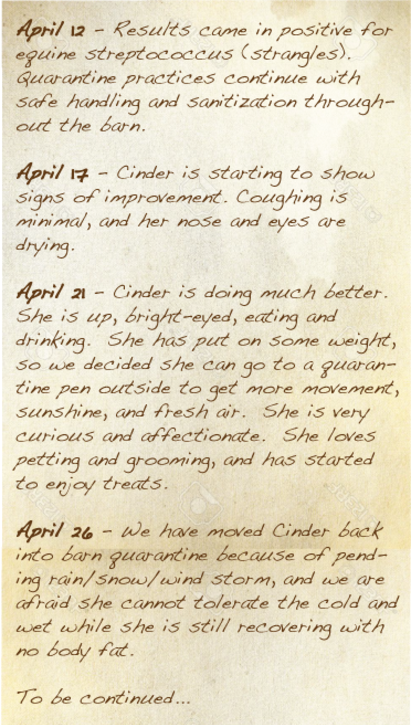 April 12 - Results came in positive for
equine streptococcus (strangles).
Quarantine practices continue with
safe handling and sanitization through-
out the barn.
April 17 - Cinder is starting to show
signs of improvement. Coughing is
minimal, and her nose and eyes are
drying.
April 21 - Cinder is doing much better.
She is up, bright-eyed, eating and
drinking. She has put on some weight,
so we decided she can go to a quaran-
tine pen outside to get more movement,
sunshine, and fresh air. She is very
curious and affectionate. She loves
petting and grooming, and has started
to enjoy treats.
April 26 - We have moved Cinder back
into barn quarantine because of pend-
ing rain/snow/wind storm, and we are
afraid she cannot tolerate the cold and
wet while she is still recovering with
no body fat.
To be continued...